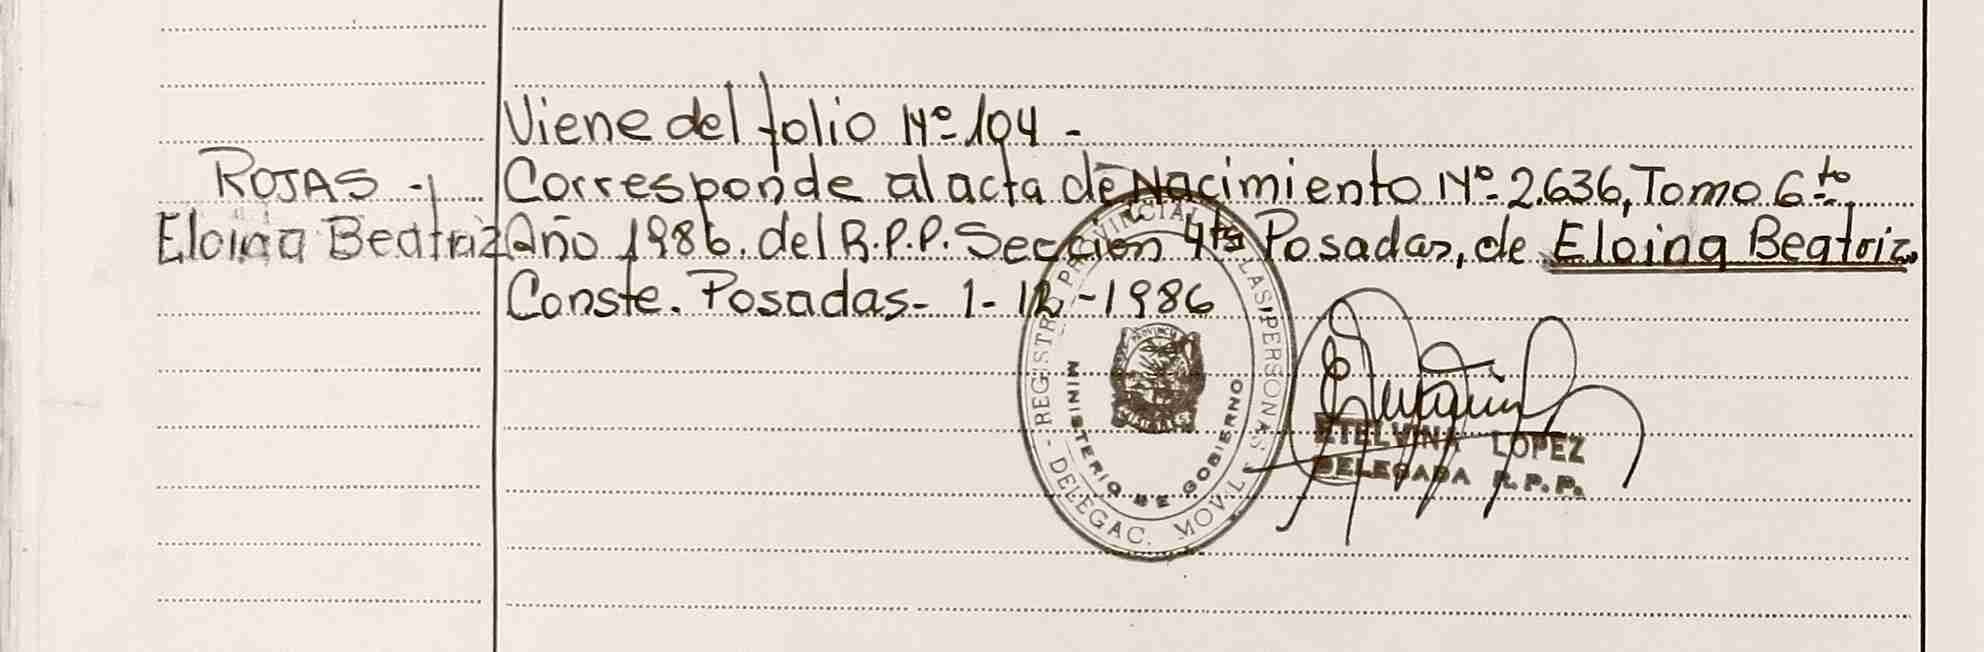 Viene del folio Nº 104 -
ROJAS -
Eloina Beatriz
Corresponde al acta de Nacimiento Nº 2.636, Tomo 6to
Año 1986. del R.P.P. Sección 4ta Posadas, de Eloina Beatriz.
Conste. Posadas - 1 - 12 - 1986
REGISTRO PROVINCIAL LAS PERSONAS
MINISTERIO DE GOBIERNO
DELEGAC. MOVIL
ETELVINA LOPEZ
DELEGADA R.P.P.